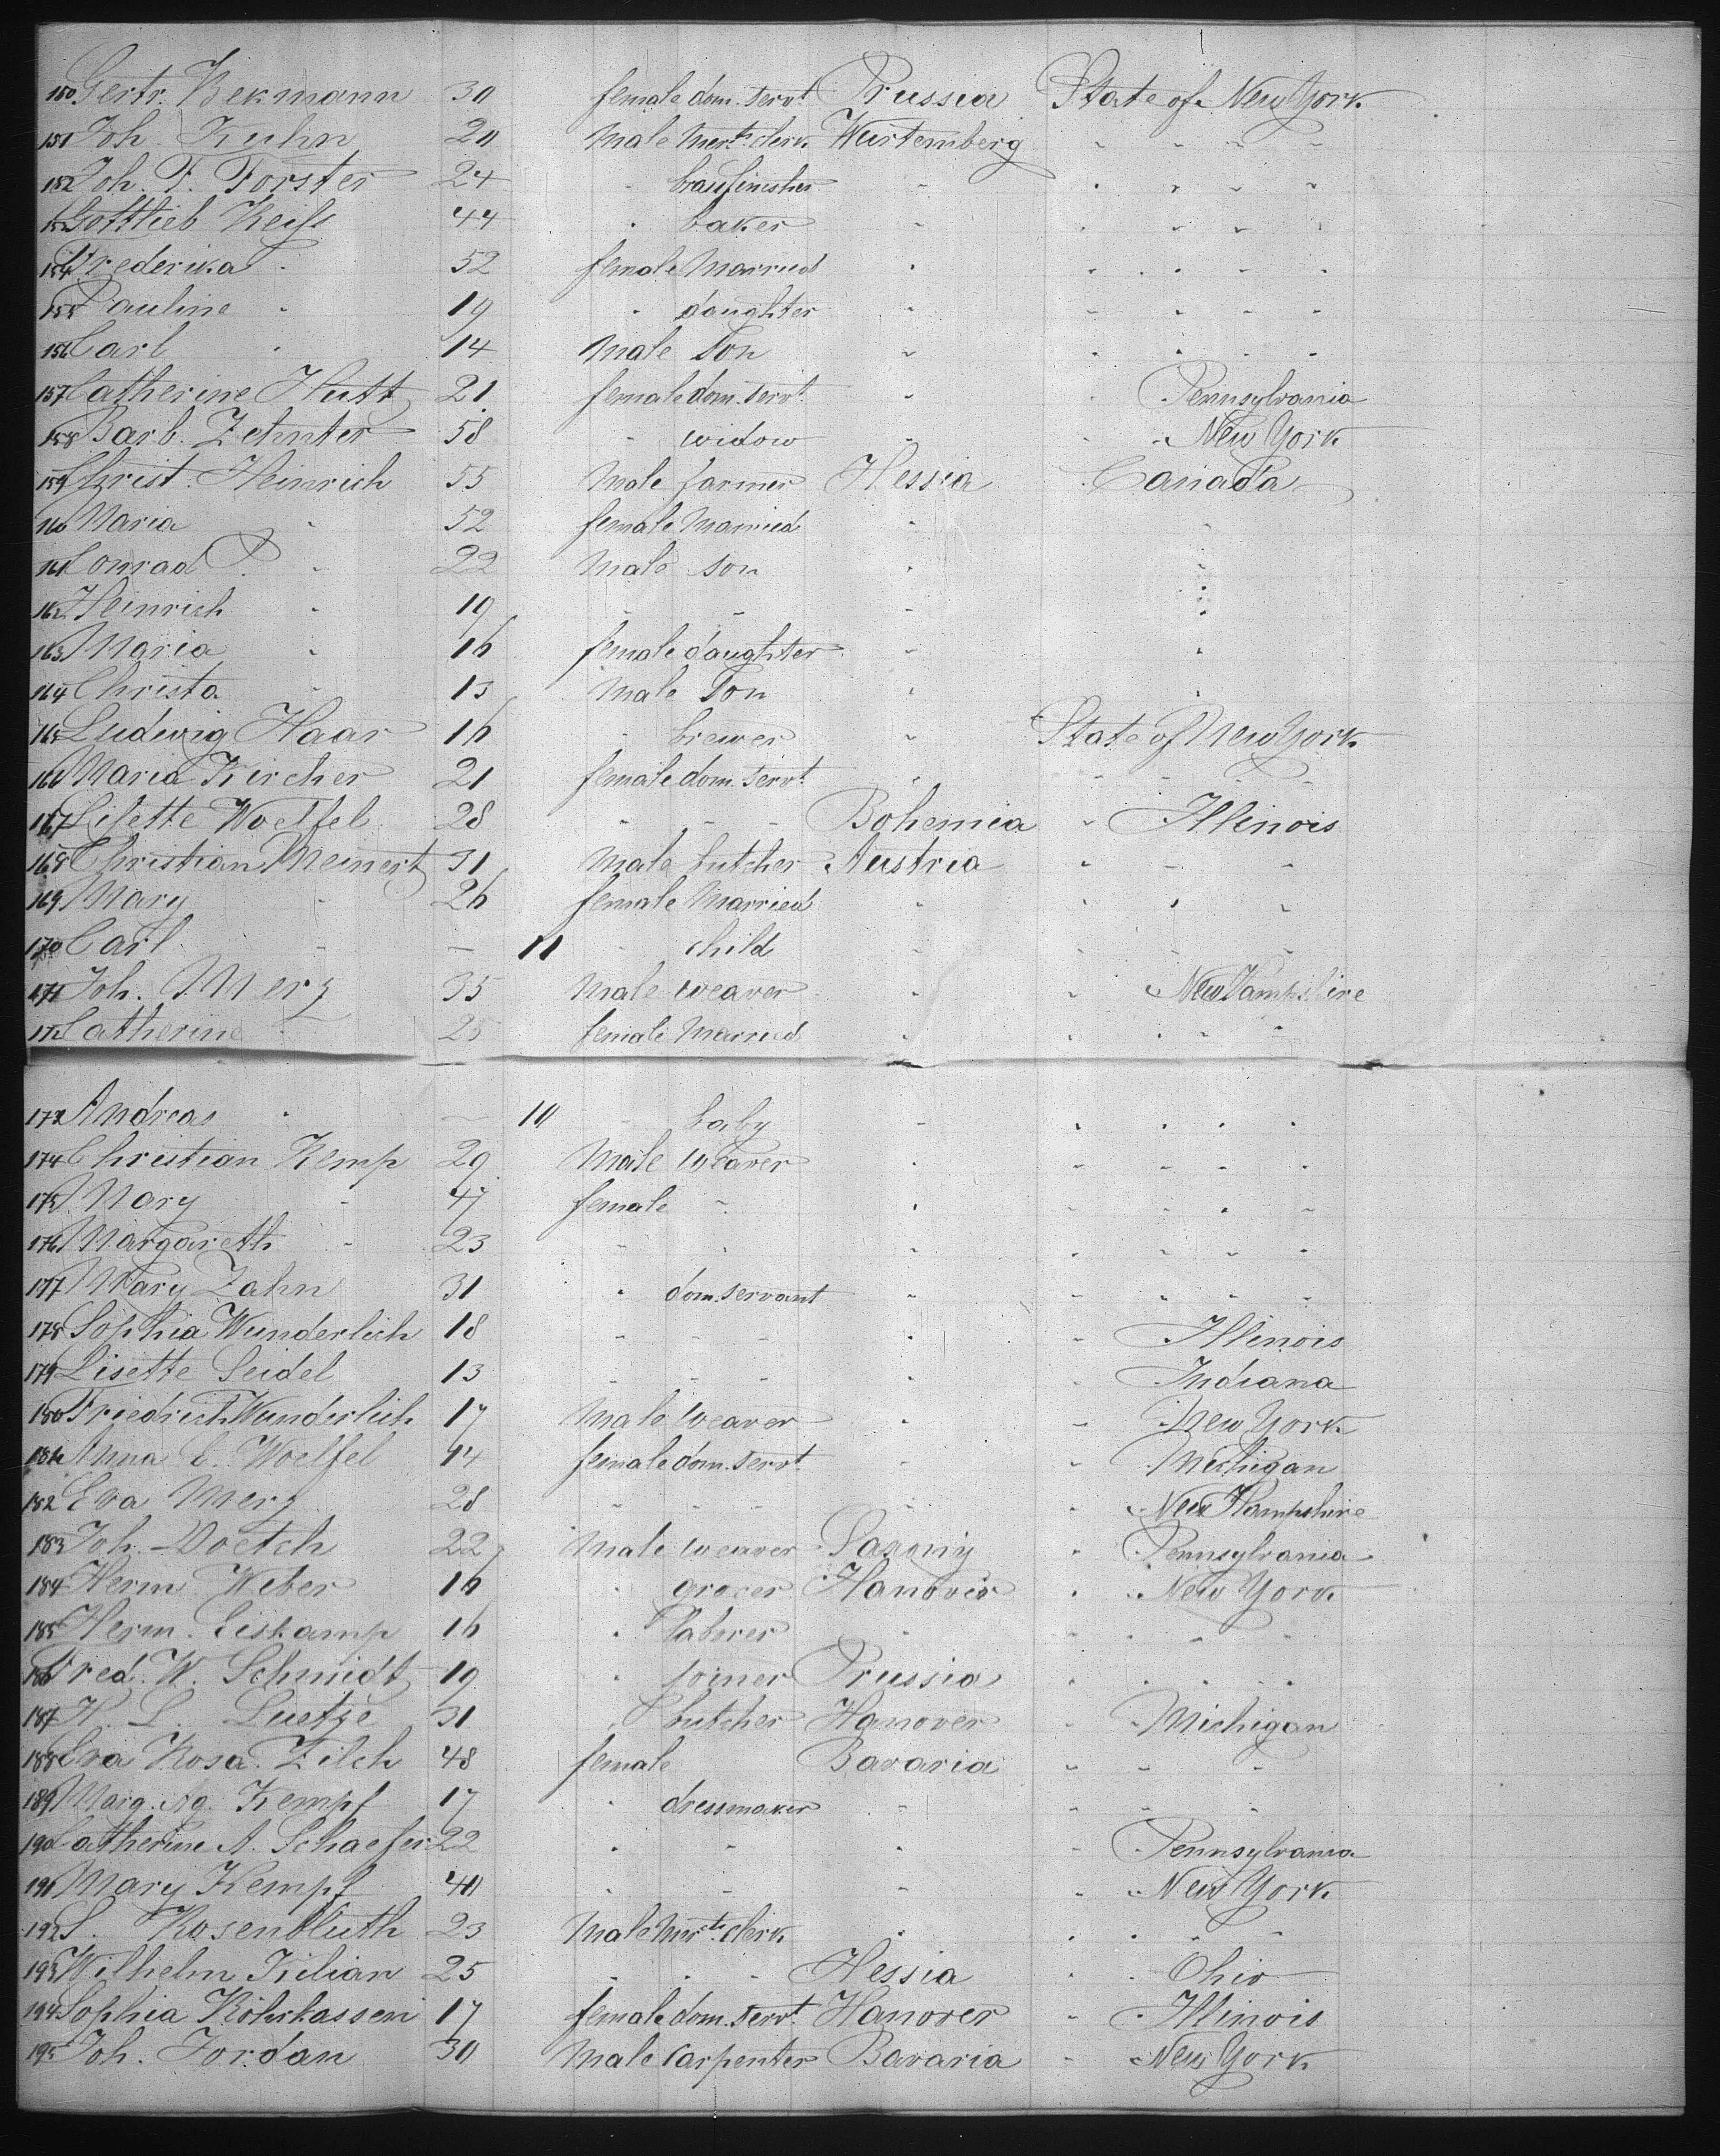 150 Gertr. Bekmann 30 female dom. servt Prussia State of New York
151 Joh. Kuhn 20 male mert. clerk Würtemberg " " " "
152 Joh. F. Forster 24 " " " " " "
153 Gottlieb Keiss 44 " baker " " " " "
154 Frederika " 52 female married " " " " "
155 Pauline " 19 " daughter " " " " "
156 Carl " 14 male son " " " " "
157 Catherine Hutt 21 female dom. servt " " Pennsylvania
158 Barb. Zehnter 58 " widow " " New York
159 Christ. Heinrich 55 male farmer Hessia Canada
160 Maria " 52 female married " "
161 Conrad P. " 22 male son " "
162 Heinrich " 19 " " " "
163 Maria " 16 female daughter " "
164 Christo. " 13 male son " "
165 Ludwig Haar 16 " brewer " State of New York
166 Maria Kircher 21 female dom. servt " " " " "
167 Lisette Woelfel 28 " " " Bohemia " Illinois
168 Christian Meinert 31 male butcher Austria " " "
169 Mary " 26 female married " " " "
170 Carl " — 11 " child " " " "
171 Joh. Merz 35 male weaver " " New Hampshire
172 Catherine " 25 female married " " " " "
173 Andreas " — 10 " baby " " " " "
174 Christian Kemp 29 male weaver " " " " "
175 Mary " 47 female " " " " " "
176 Margareth " 23 " " " " " " "
177 Mary Zahn 31 " dom. servant " " " " "
178 Sophia Wunderlich 18 " " " " " Illinois
179 Lisette Seidel 13 " " " " " Indiana
180 Friedrich Wunderlich 17 male weaver " " New York
181 Anna E. Woelfel 14 female dom. servt " " Michigan
182 Eva Merz 28 " " " " " New Hampshire
183 Joh. Doetch 22 male weaver Saxony " Pennsylvania
184 Herm Weber 16 " grocer Hanover " New York
185 Herm. Eiskamp 16 " laborer " " " " "
186 Fred. W. Schmidt 19 " joiner Prussia " " " "
187 H. L. Luetze 31 " butcher Hanover " Michigan
188 Eva Rosa Zilch 48 female Bavaria " " "
189 Marg. Ag. Kempf 17 " dressmaker " " " "
190 Catherine A. Schaefer 22 " " " " Pennsylvania
191 Mary Kempf 40 " " " " New York
192 S. Rosenbluth 23 male mert. clerk " " " " "
193 Wilhelm Kilian 25 " " " Hessia " " Ohio
194 Sophia 17 female dom. servt Hanover " Illinois
195 Joh. Jordan 30 male carpenter Bavaria " New York